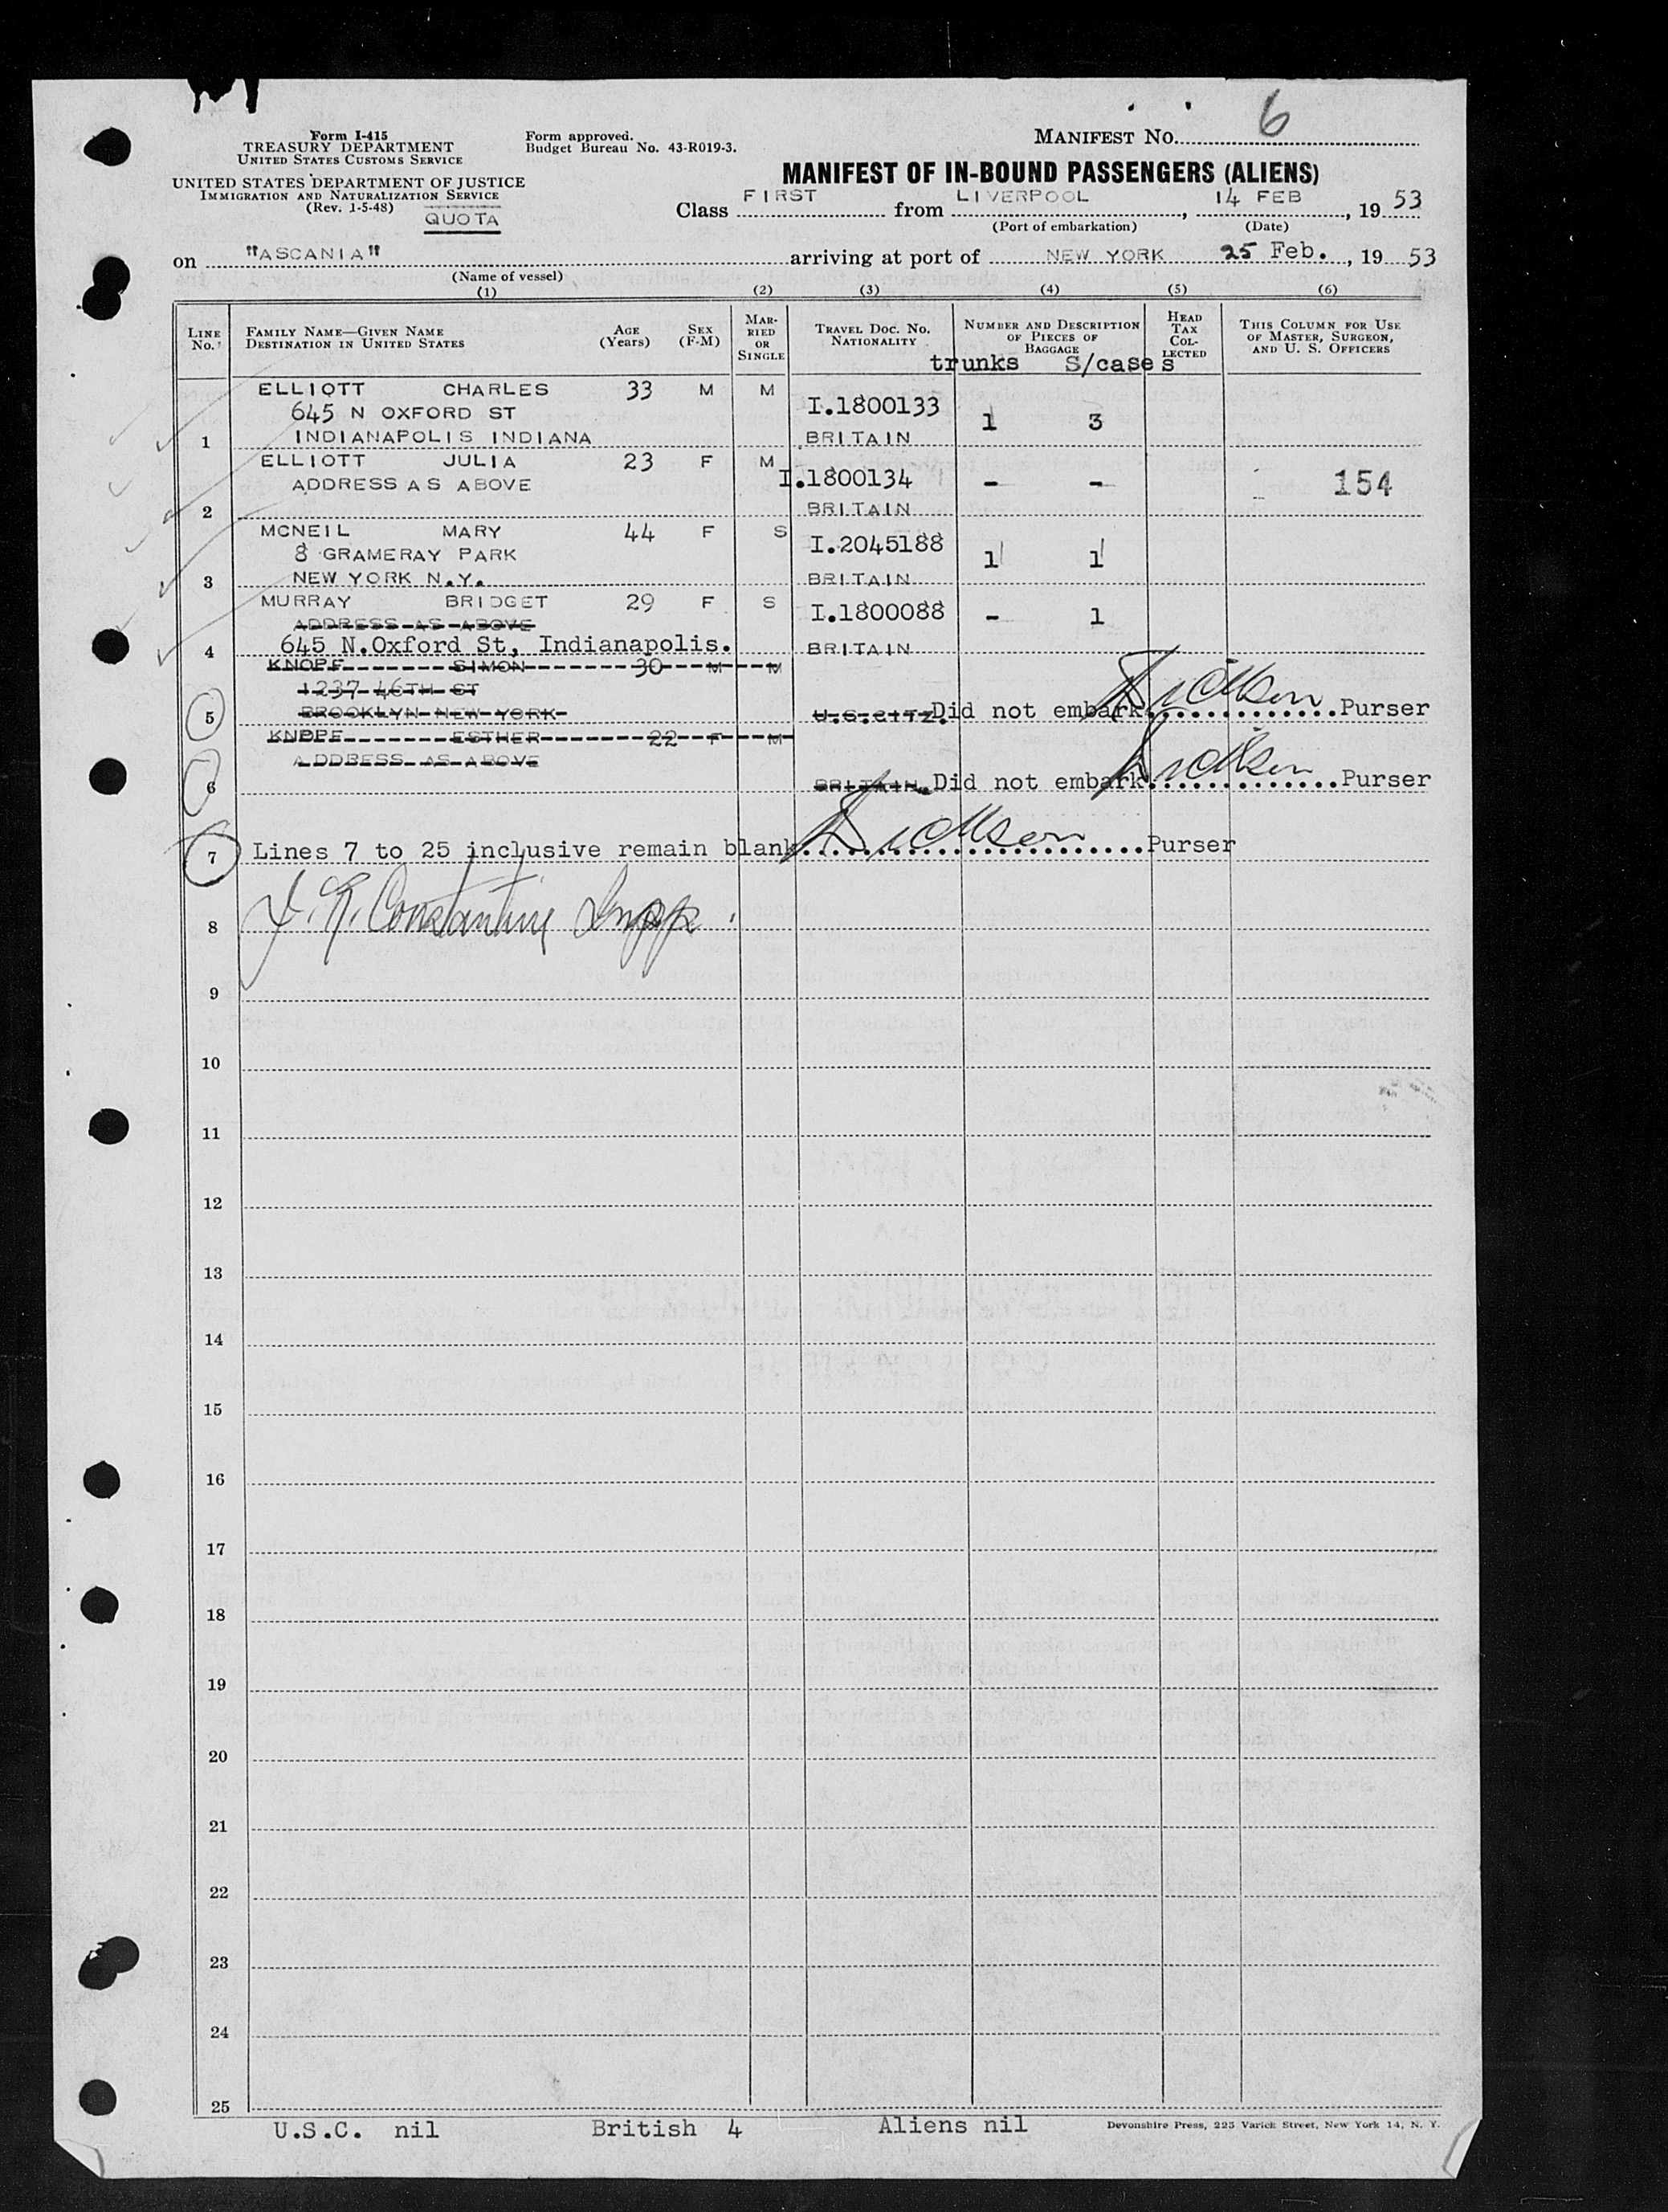 Form I-415
TREASURY DEPARTMENT
UNITED STATES CUSTOMS SERVICE
UNITED STATES DEPARTMENT OF JUSTICE
IMMIGRATION AND NATURALIZATION SERVICE
(Rev. 1-5-48)
QUOTA
Form approved.
Budget Bureau No. 43-R019-3.
MANIFEST NO. 6
MANIFEST OF IN-BOUND PASSENGERS (ALIENS)
Class FIRST from LIVERPOOL, 14 FEB, 19 53
(Port of embarkation) (Date)
on "ASCANIA" arriving at port of NEW YORK 25 Feb., 19 53
(Name of vessel)
(1) (2) (3) (4) (5) (6)
LINE NO. FAMILY NAME—GIVEN NAME DESTINATION IN UNITED STATES AGE (Years) SEX (F-M) MARRIED OR SINGLE TRAVEL DOC. NO. NATIONALITY NUMBER AND DESCRIPTION OF PIECES OF BAGGAGE HEAD TAX COLLECTED THIS COLUMN FOR USE OF MASTER, SURGEON, AND U. S. OFFICERS
trunks S/cases
ELLIOTT CHARLES 33 M M I.1800133 1 3
645 N OXFORD ST
1 INDIANAPOLIS INDIANA BRITAIN
ELLIOTT JULIA 23 F M I.1800134 - - 154
ADDRESS AS ABOVE
2 BRITAIN
MCNEIL MARY 44 F S I.2045188 1 1
8 GRAMERAY PARK
3 NEW YORK N.Y. BRITAIN
MURRAY BRIDGET 29 F S I.1800088 - 1
ADDRESS AS ABOVE
4 645 N.Oxford St, Indianapolis. BRITAIN
KNOPF SIMON 30 M M
1237 46TH ST
5 BROOKLYN NEW YORK U.S.CITZ. Did not embark Purser
KNOPF ESTHER 22 F M
ADDRESS AS ABOVE
6 BRITAIN. Did not embark Purser
7 Lines 7 to 25 inclusive remain blank Purser
8 Constantine Inspr
9
10
11
12
13
14
15
16
17
18
19
20
21
22
23
24
25
U.S.C. nil British 4 Aliens nil
Devonshire Press, 225 Varick Street, New York 14, N. Y.